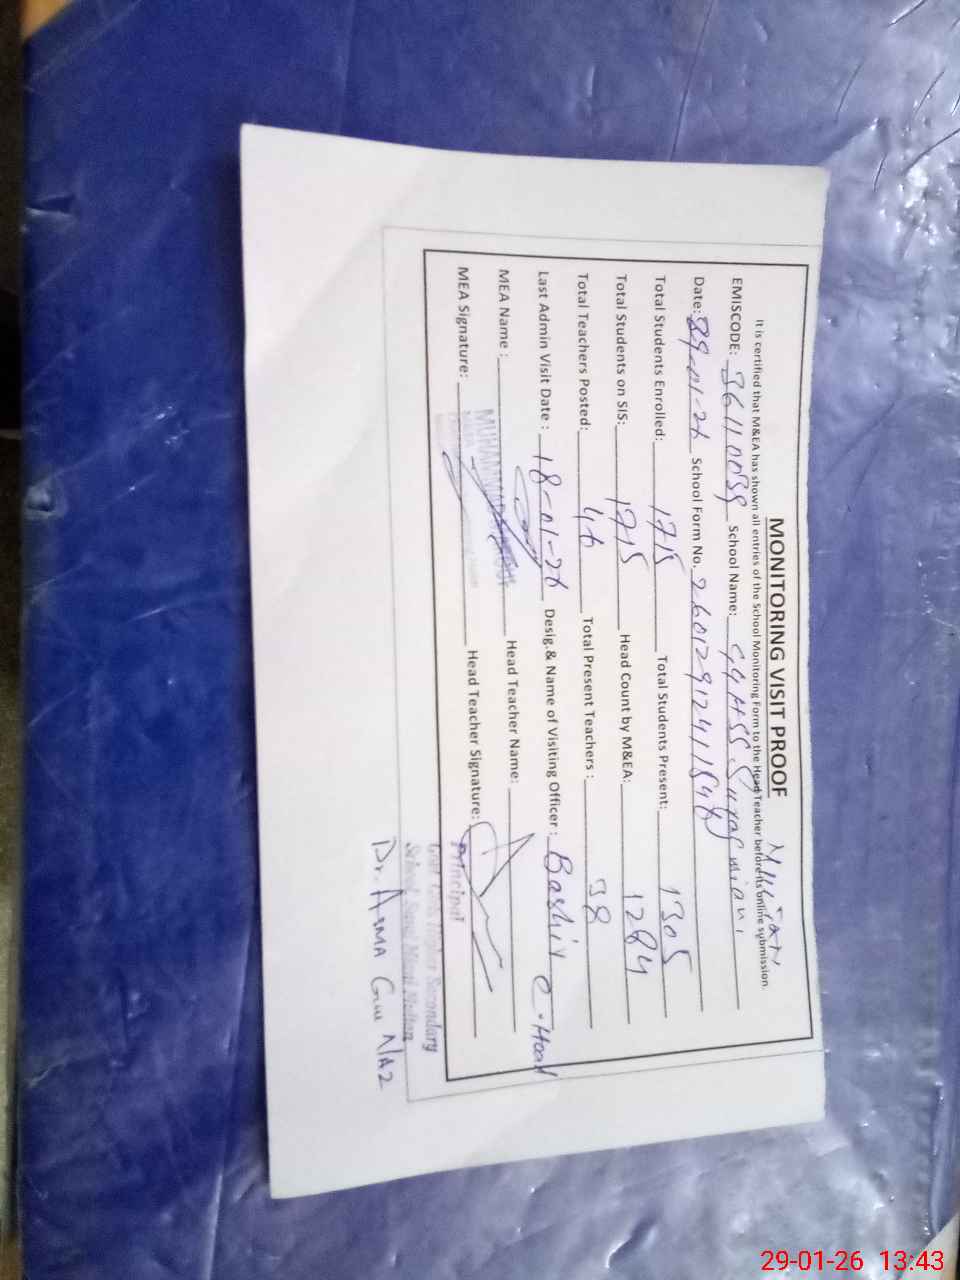 MONITORING VISIT PROOF
It is certified that M&EA has shown all entries of the School Monitoring Form to the Head Teacher before its online submission.
EMISCODE: 36110039 School Name: GGHSS Suraj miani
Date: 29-01-26 School Form No. 26012912411548
Total Students Enrolled: 1715 Total Students Present: 1305
Total Students on SIS: 1715 Head Count by M&EA: 1284
Total Teachers Posted: 46 Total Present Teachers : 38
Last Admin Visit Date : 18-01-26 Desig.& Name of Visiting Officer : Bashir
MEA Name : MUHAMMAD Head Teacher Name:
MEA Signature: Head Teacher Signature:
Principal
Govt. Girls Higher Secondary
School Suraj Miani Multan
Dr. Asma Gul
29-01-26 13:43